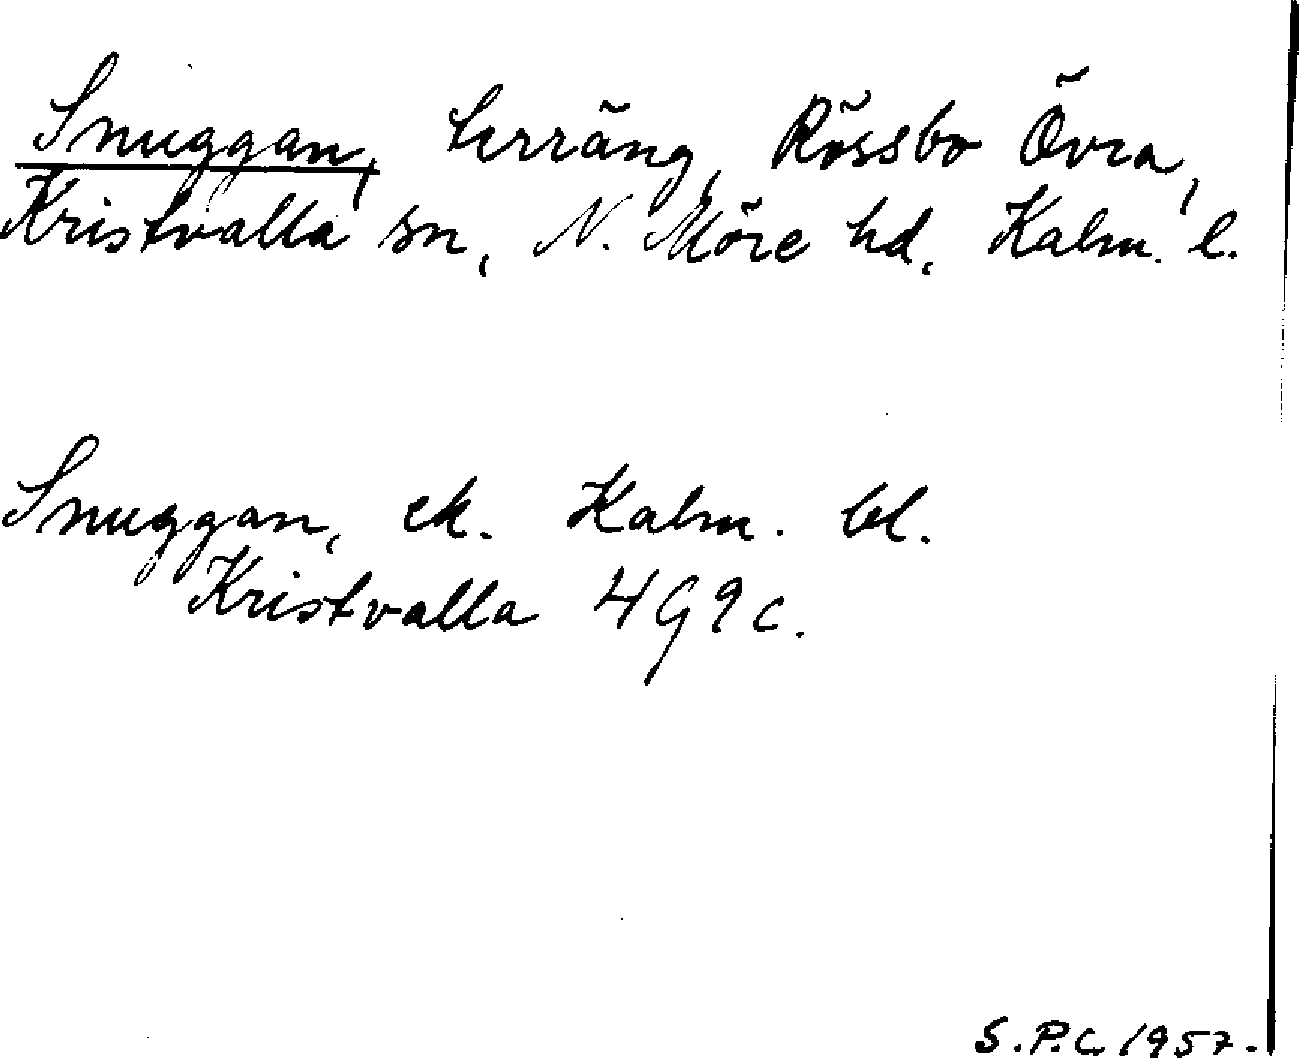 Snuggan, terräng, Rössbo Övra,
Kristvalla sn, N. Möre hd, Kalm. l.
Snuggan, ek. Kalm. bl.
Kristvalla 4G9c.
S.P.C. 1957.